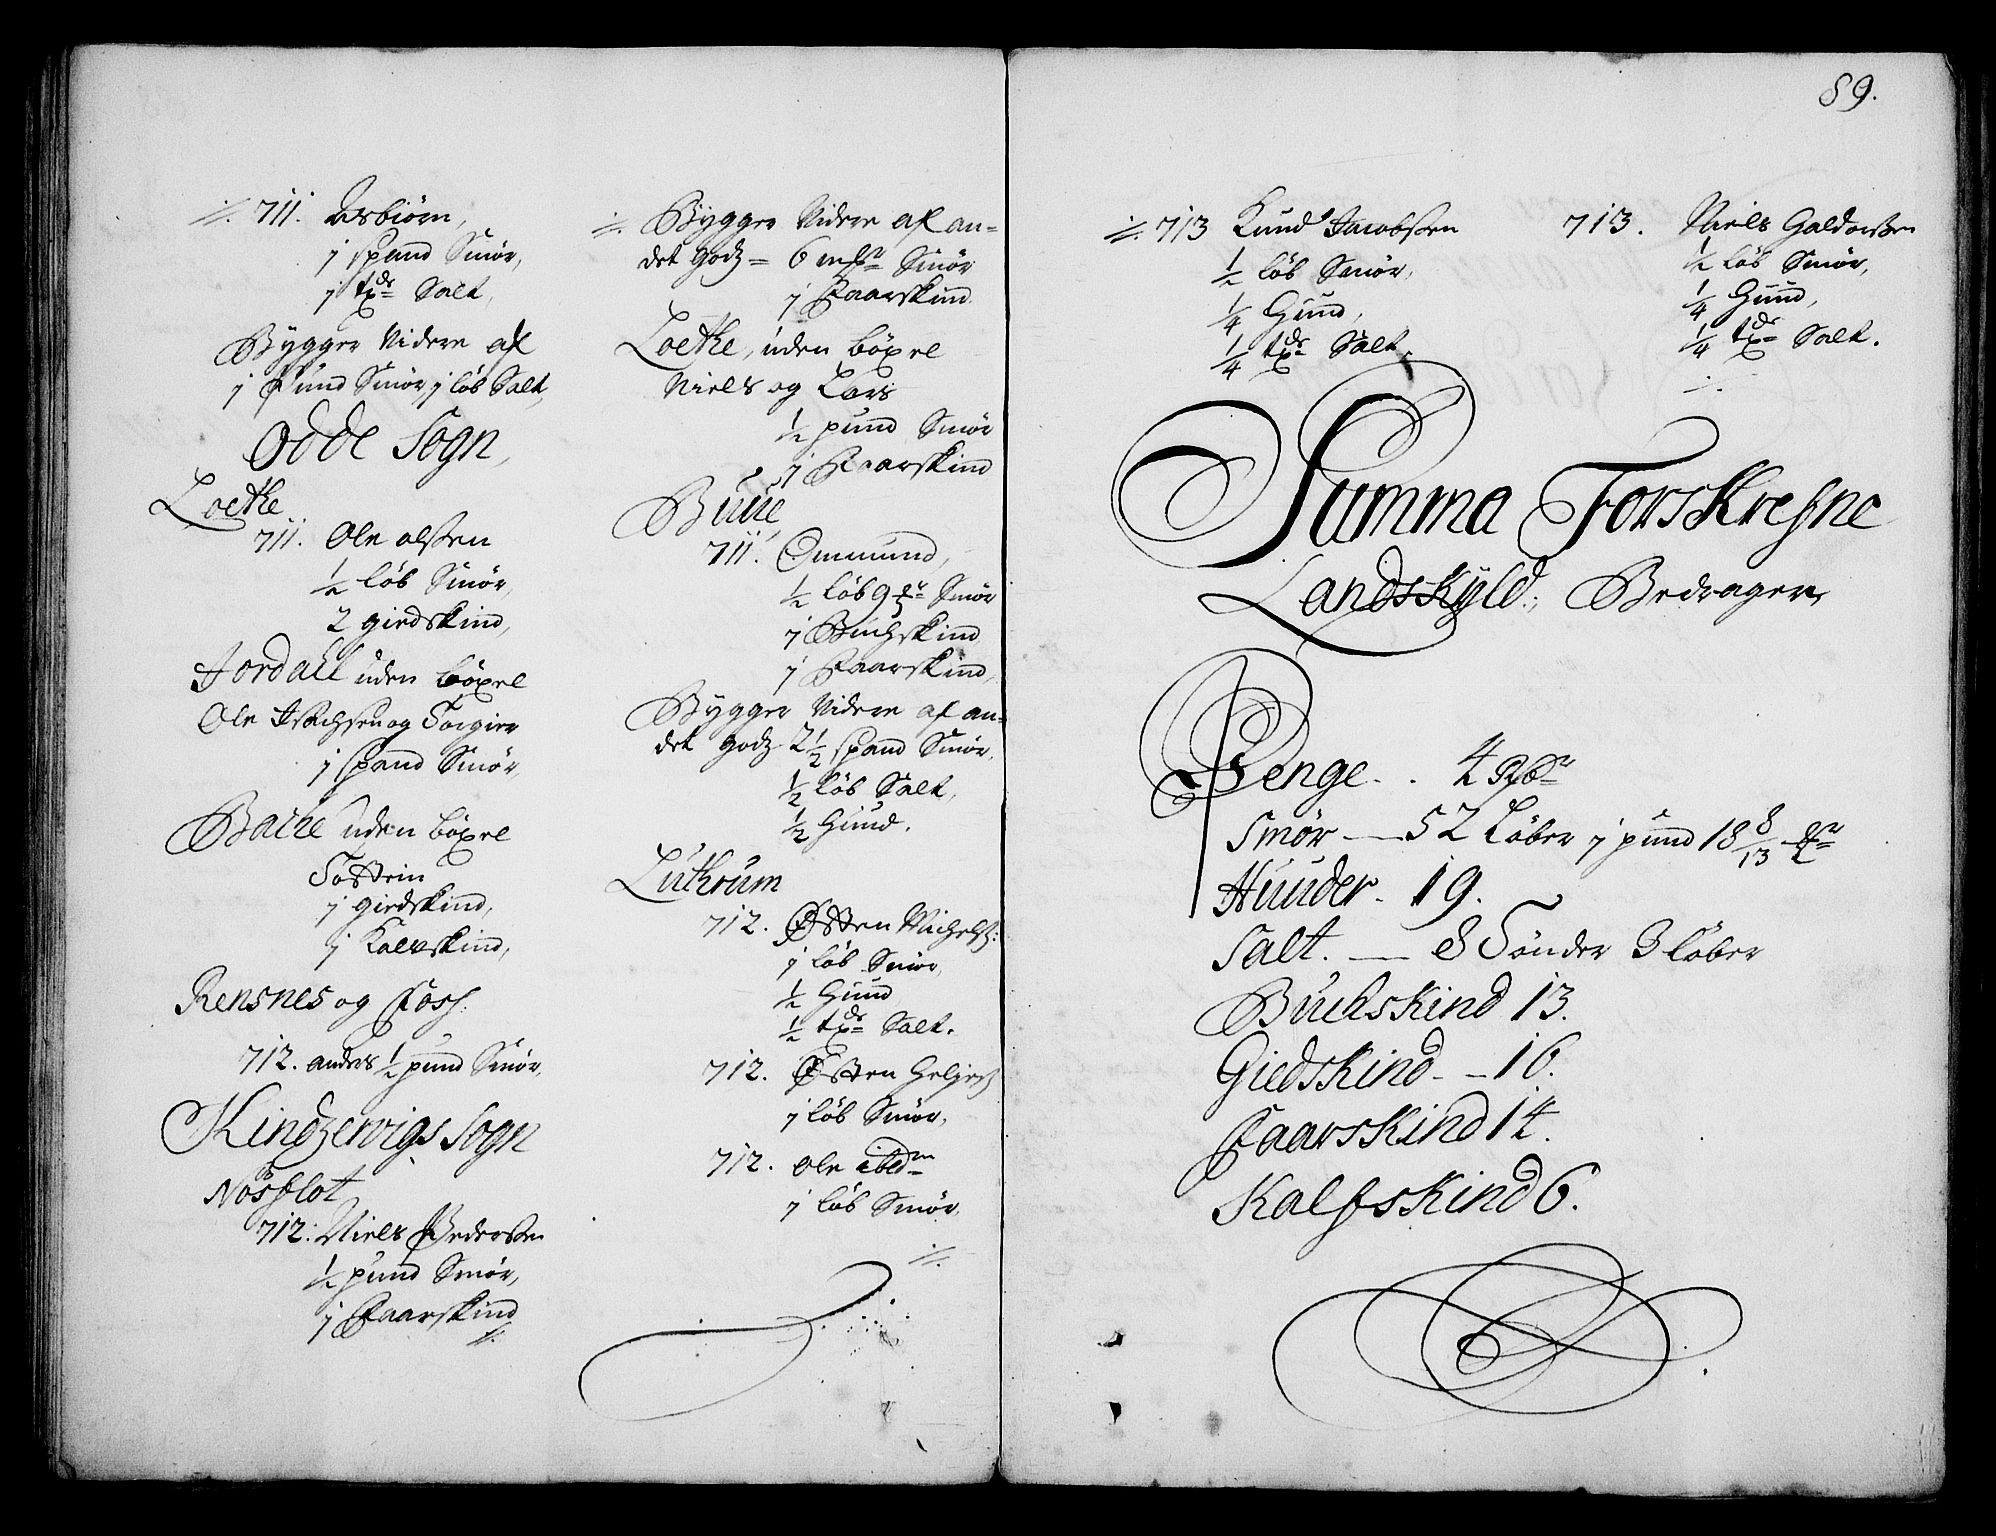 711. Asbiörn,
j spand Smör,
j tde Salt,
Bygger Videre af
j Pund Smör, j löb Salt,
Odde Sogn,
Loethe
711. Ole olssen
½ löb Smör,
2 giedskind,
Jordall uden böxel
Ole Isachsen og Torgier
j spand Smör,
Bache uden böxel
Tostein
j giedskind,
j Kalvskind,
Rensnes og Foss.
712. anders ½ pund Smör,
Kindzervigs Sogn
Nösflot
712. Niels Pedersen
½ pund Smör,
j Faarskind
Bygger Videre af an=
det godz = 6 Smör
j Faarskind.
Loethe, uden böxel
Niels og Lars
½ pund Smör
j Faarskind
Buue,
711. Ommund,
½ löb 9 Smör
j Buchskind
j Faarskind,
Bygger Videre af an=
det godz 2½ spand Smör,
½ löb Salt,
½ Huud.
Luthrum
712. Østen Michels:
j löb Smör,
½ Huud
½ tde Salt.
712. Østen Helgies
j löb Smör,
712. Ole ibdm
j löb Smör,
89.
713 Knud Jacobsen
½ löb Smör,
¼ Huud,
¼ tde Salt,
713. Niels Haldorsen
½ löb Smör,
¼ Huud,
¼ tde Salt.
Summa Forskrefne
Landskyld; Bedrager,
Penge. . 4 Rdr
Smör — 52 Löber j pund 18 8/13
Huuder. 19.
Salt. — 8 Tönder 3 löber
Buchskind 13.
Giedskind - - 16.
Faarskind 14.
Kalfskind 6.